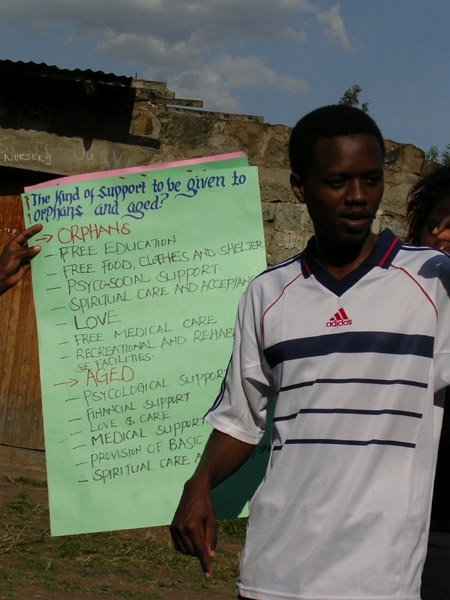 NURSERY
The Kind of support to be given to
orphans and aged?
→ ORPHANS
- FREE EDUCATION
- FREE FOOD, CLOTHES AND SHELTER
- PSYCO-SOCIAL SUPPORT
- SPIRITUAL CARE AND ACCEPTANC
- LOVE
- FREE MEDICAL CARE
- RECREATIONAL AND REHAB
SE FACILITIES.
→ AGED
- PSYCOLOGICAL SUPPOR
- FINANCIAL SUPPORT
- LOVE & CARE
- MEDICAL SUPPORT
- PROVISION OF BASIC
- SPIRITUAL CARE A
adidas